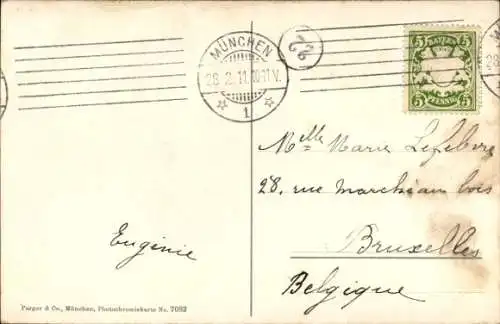 MÜNCHEN
28.2.11.10-11V.
1
22
BAYERN
5 5
PFENNIG
5 5
Mlle Marie Lefebvre
28, rue Marchiam bois
Bruxelles
Belgique
Eugénie
Purger & Co., München, Photochromiekarte No. 7082